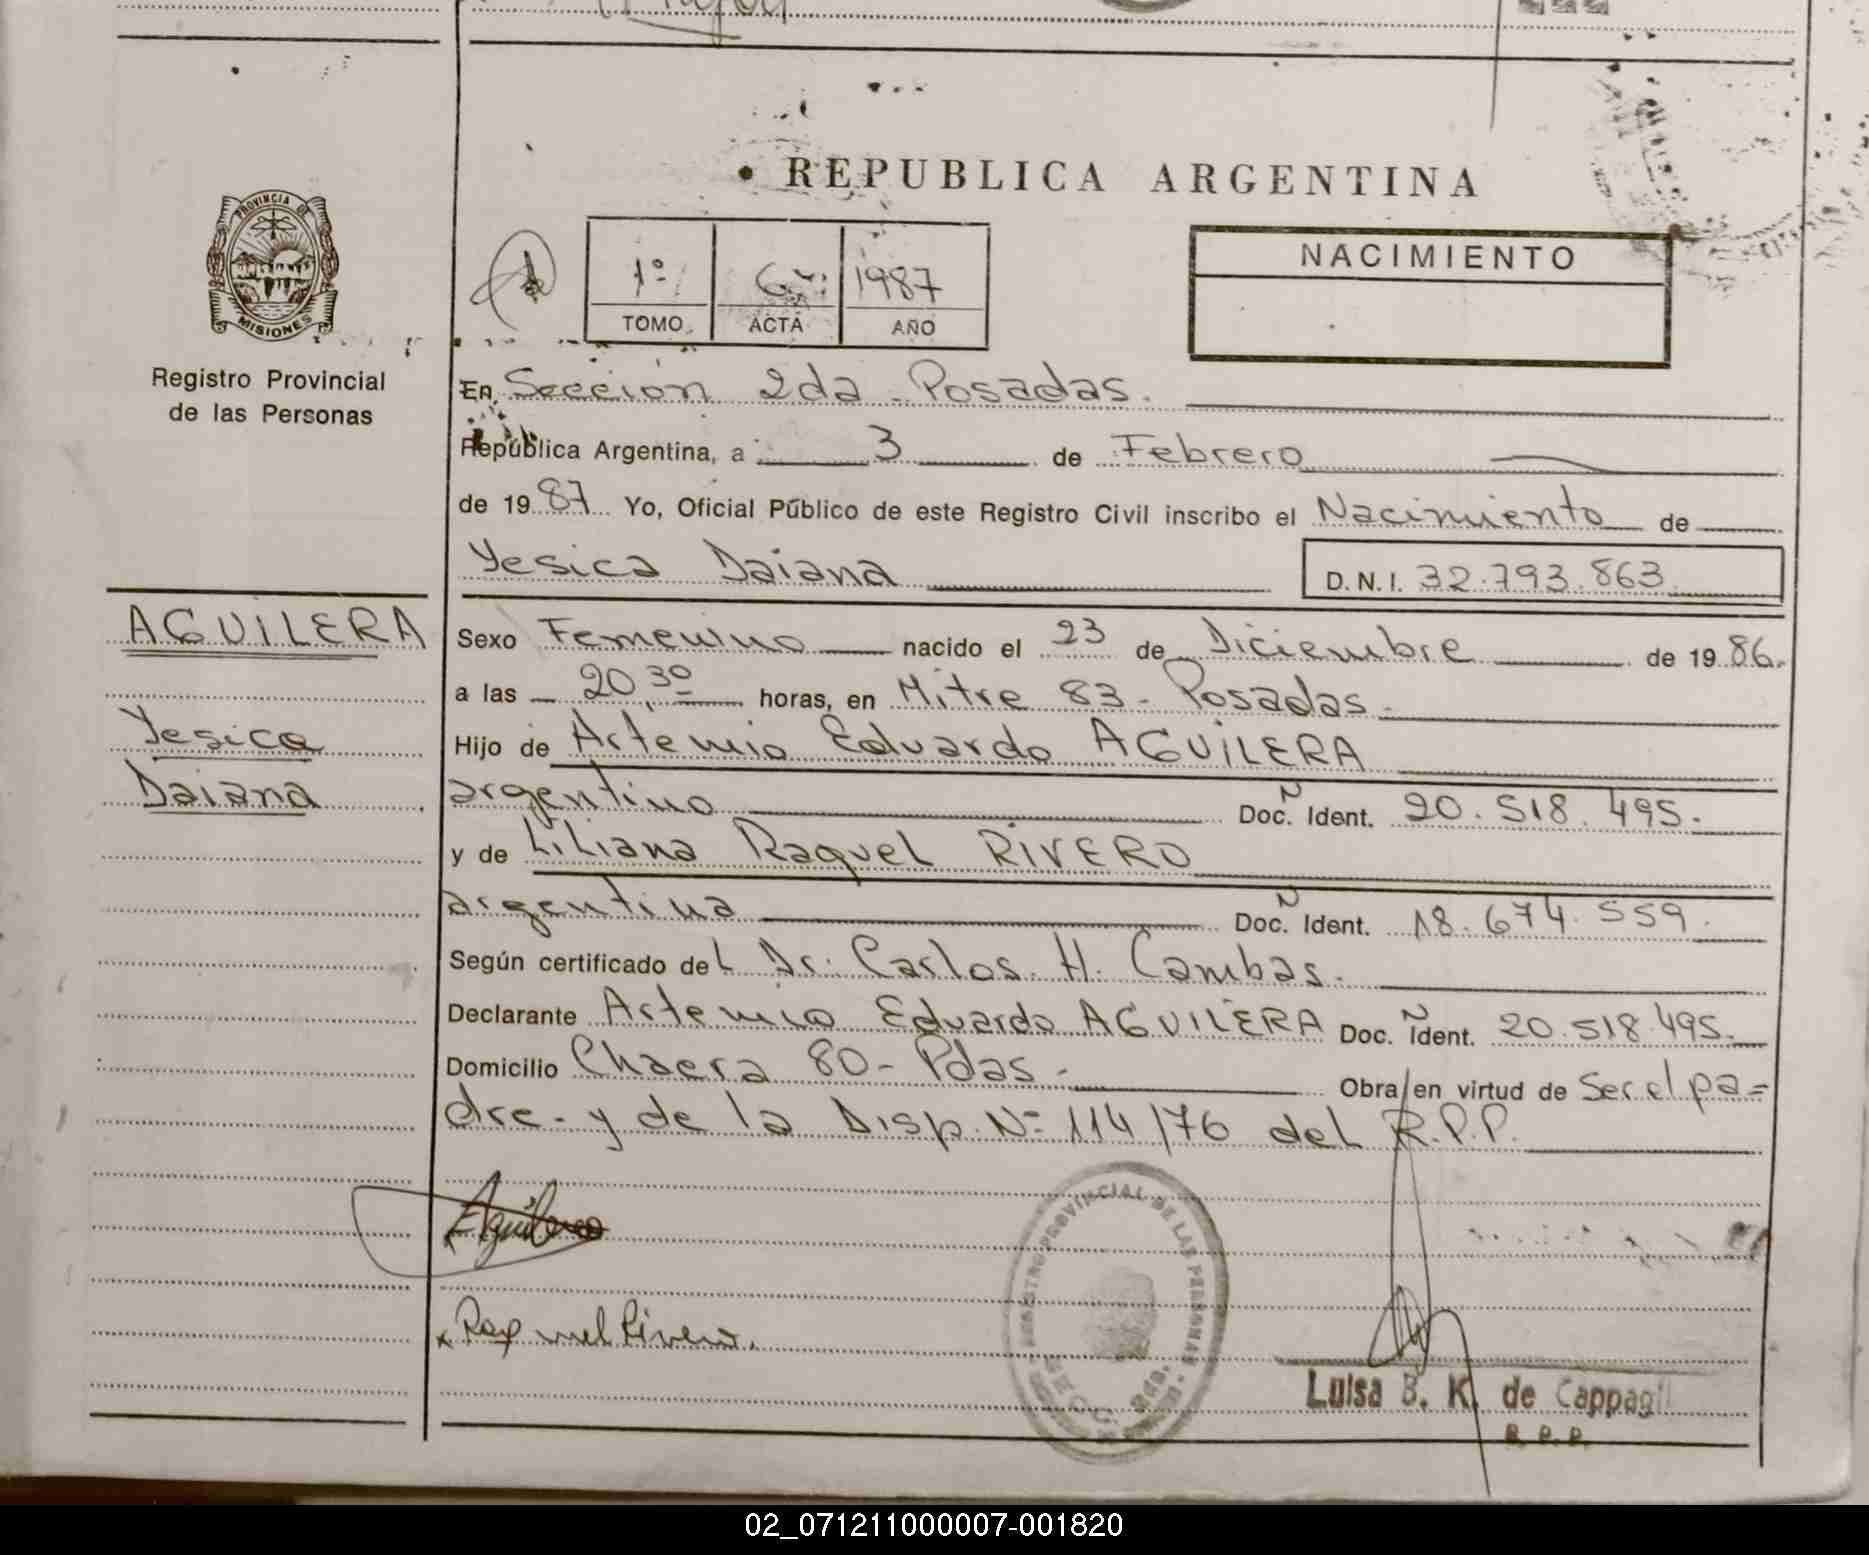 REPUBLICA ARGENTINA
PROVINCIA DE
MISIONES
Registro Provincial
de las Personas
1º 1987
TOMO ACTA AÑO
NACIMIENTO
En Sección 2da - Posadas.
República Argentina, a 3 de Febrero
de 1987 Yo, Oficial Público de este Registro Civil inscribo el Nacimiento de
Yesica Daiana D.N.I. 32.793.863
AGUILERA
Yesica
Daiana
Sexo Femenino nacido el 23 de Diciembre de 1986.
a las 20,30 horas, en Mitre 83 - Posadas -
Hijo de Artemio Eduardo AGUILERA
argentino Doc. N Ident. 20.518.495.
y de Liliana Raquel RIVERO
argentina Doc. N Ident. 18.674.559.
Según certificado del Dr. Carlos H. Cambas.
Declarante Artemio Eduardo AGUILERA Doc. N Ident. 20.518.495.
Domicilio Chacra 80 - Pdas - Obra en virtud de Ser el pa=
dre - y de la Disp. Nº 114/76 del R.P.P.
Aguilera
x Raquel Rivero.
REGISTRO PROVINCIAL DE LAS PERSONAS
SECC. 2da.
Luisa B. K. de Cappagli
R. P. P.
02_071211000007-001820